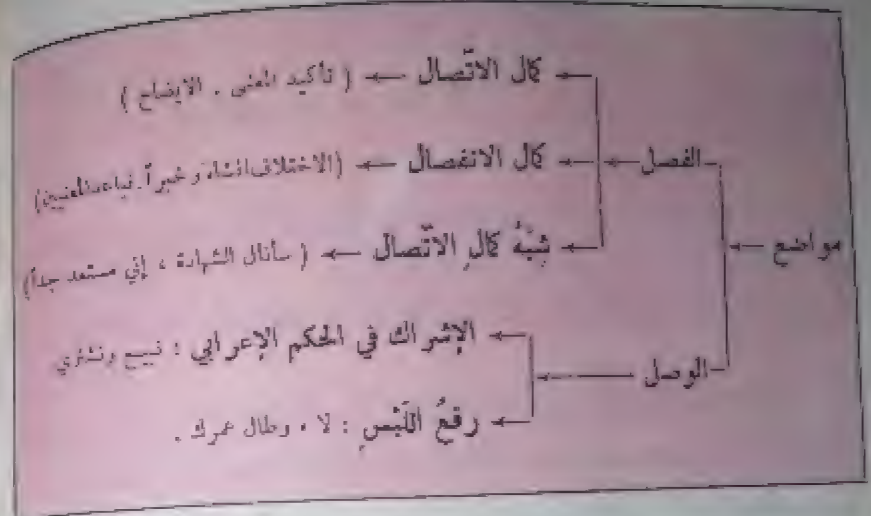 كمال الاتّصال ← ( تأكيد المعنى . الايضاح )
الفصل ← كمال الانفصال ← (الاختلاف انشاءً وخبراً. تباعد المعنيين)
مواضع ← شِبْهُ كمالِ الاتّصال ← ( سأنال الشهادة ، إني مستعد جداً)
الإشراك في الحكم الإعرابي : نبيع ونشتري
الوصل ←
رفعُ اللَّبْسِ : لا ، وطال عمرك .